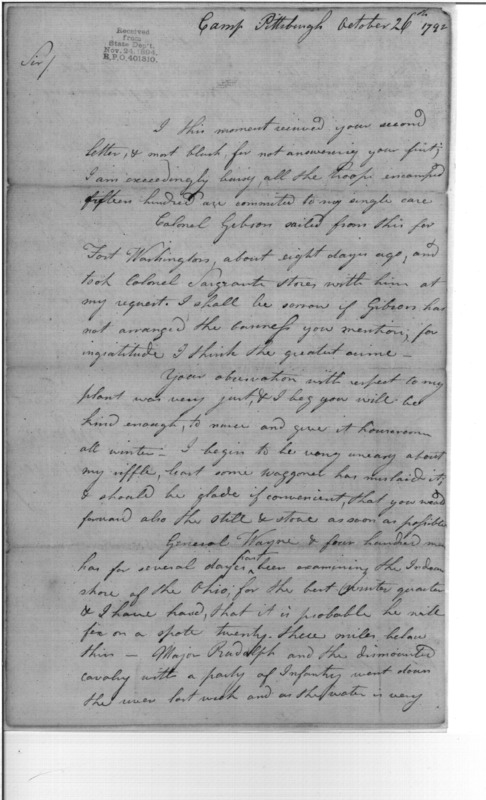 Camp Pittsburgh October 26th 1792
Received
from
State Dep't.
Nov. 24, 1894,
R.P.O. 401310.
Sir/
I this moment received your second
letter, & must blush, for not answering your first;
I am exceedingly busy, all the troops encamped
fifteen hundred are committed to my single care
Colonel Gibson sailed from this for
Fort Washington, about eight days ago, and
took Colonel Sargrants stores with him at
my request. I shall be sorrow if Gibson has
not arranged the business you mention; for
ingratitude I think the greatest crime –
Your observation with respect to my
plant was very just, & I beg you will be
kind enough, to nurse and give it houseroom
all winter – I begin to be very uneasy about
my riffle, least some waggoner has mislaid it;
& should be glade if convenient, that you would
forward also the still & stove as soon as possible
General Wayne & four hundred men
has for several dayes past been examining the Indian
shore of the Ohio, for the best winter quarters
& I have heard, that it is probable he will
fix on a spote twenty three miles below
this – Major Rudolph and the dismounted
cavalry with a party of Infantry went down
the river last week and as the water is very